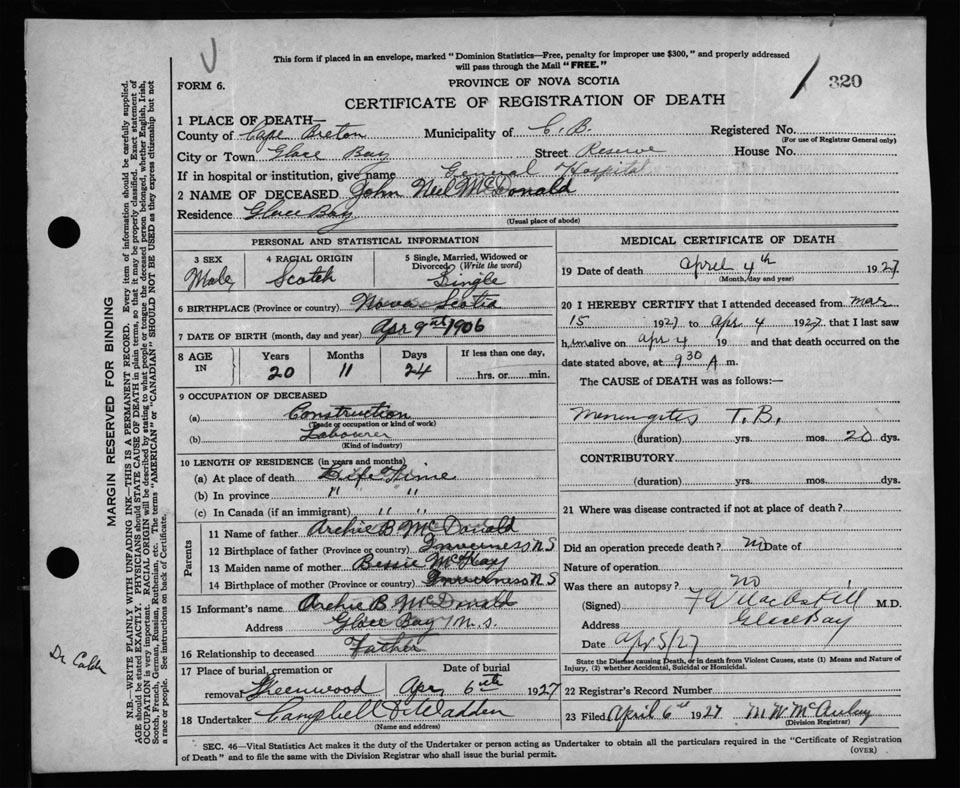 This form if placed in an envelope, marked "Dominion Statistics—Free, penalty for improper use $300," and properly addressed
will pass through the Mail "FREE."
FORM 6.
PROVINCE OF NOVA SCOTIA
320
CERTIFICATE OF REGISTRATION OF DEATH
1 PLACE OF DEATH—
County of Cape Breton Municipality of C. B. Registered No.
(For use of Registrar General only)
City or Town Glace Bay Street Reserve House No.
If in hospital or institution, give name General Hospital
2 NAME OF DECEASED John Neil McDonald
Residence Glace Bay
(Usual place of abode)
PERSONAL AND STATISTICAL INFORMATION
3 SEX
4 RACIAL ORIGIN
5 Single, Married, Widowed or
Divorced (Write the word)
Male Scotch Single
6 BIRTHPLACE (Province or country) Nova Scotia
7 DATE OF BIRTH (month, day and year) Apr 9th 1906
8 AGE
IN
Years Months Days If less than one day,
20 11 24 hrs. or min.
9 OCCUPATION OF DECEASED
(a) Construction
(Trade or occupation or kind of work)
(b) Labourer
(Kind of industry)
10 LENGTH OF RESIDENCE (in years and months)
(a) At place of death Life Time
(b) In province " "
(c) In Canada (if an immigrant) " "
Parents
11 Name of father Archie B McDonald
12 Birthplace of father (Province or country) Inverness N S
13 Maiden name of mother Bessie McKay
14 Birthplace of mother (Province or country) Inverness N S
15 Informant's name Archie B McDonald
Address Glace Bay N. S.
16 Relationship to deceased Father
17 Place of burial, cremation or Date of burial
removal Greenwood Apr 6th 1927
18 Undertaker Campbell & Wadden
(Name and address)
MEDICAL CERTIFICATE OF DEATH
19 Date of death April 4th 1927
(Month, day and year)
20 I HEREBY CERTIFY that I attended deceased from Mar
15 1927 to Apr 4 1927 that I last saw
him alive on Apr 4 19 and that death occurred on the
date stated above, at 9 30 A m.
The CAUSE OF DEATH was as follows:—
Meningites T. B.
(duration) yrs. mos. 20 dys.
CONTRIBUTORY
(duration) yrs. mos. dys.
21 Where was disease contracted if not at place of death?
Did an operation precede death? no Date of
Nature of operation
Was there an autopsy? no
(Signed) M.D.
Address Glace Bay
Date Apr 5/27
State the Disease causing Death, or in death from Violent Causes, state (1) Means and Nature of
Injury, (2) whether Accidental, Suicidal or Homicidal.
22 Registrar's Record Number
23 Filed April 6th 1927 M. W. McAulay
(Division Registrar)
SEC. 46—Vital Statistics Act makes it the duty of the Undertaker or person acting as Undertaker to obtain all the particulars required in the "Certificate of Registration
of Death" and to file the same with the Division Registrar who shall issue the burial permit.
(OVER)
MARGIN RESERVED FOR BINDING
N.B.—WRITE PLAINLY WITH UNFADING INK—THIS IS A PERMANENT RECORD. Every item of information should be carefully supplied.
AGE should be stated EXACTLY. PHYSICIANS should STATE CAUSE OF DEATH in plain terms, so that it may be properly classified. Exact statement of
OCCUPATION is very important. RACIAL ORIGIN will be described by stating to what people or tongue the deceased person belonged, whether English, Irish,
Scotch, French, German, Russian, Ruthenian, etc. The terms "AMERICAN" or "CANADIAN" SHOULD NOT BE USED as they express citizenship but not
a race or people. See instructions on back of Certificate.